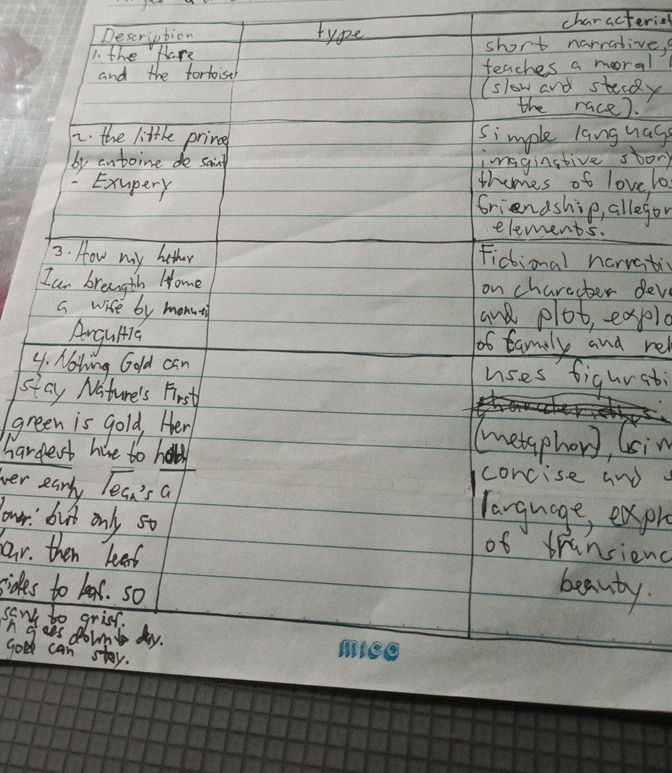 Description
type
characterist
1. the Hare
and the tortoise
short narrative,
teaches a moral
(slow and steady
the race).
2. the little prince
by antoine de saint
- Exupery
simple language
imaginative story
themes of love, lo
friendship, allegor
elements.
3. How my
Home
a wife by
Arguilla
Fictional narrativ
on character deve
and plot, explo
of family and rel
4. Nothing Gold can
stay Nature's First
green is gold, Her
hardest hue to hold
her early leaf's a
but only so
then leaf
to leaf. so
sank to grief.
down to day.
gold can stay.
uses figurati
(metaphor), (sim
concise and
language, explo
of transienc
beauty.
mico